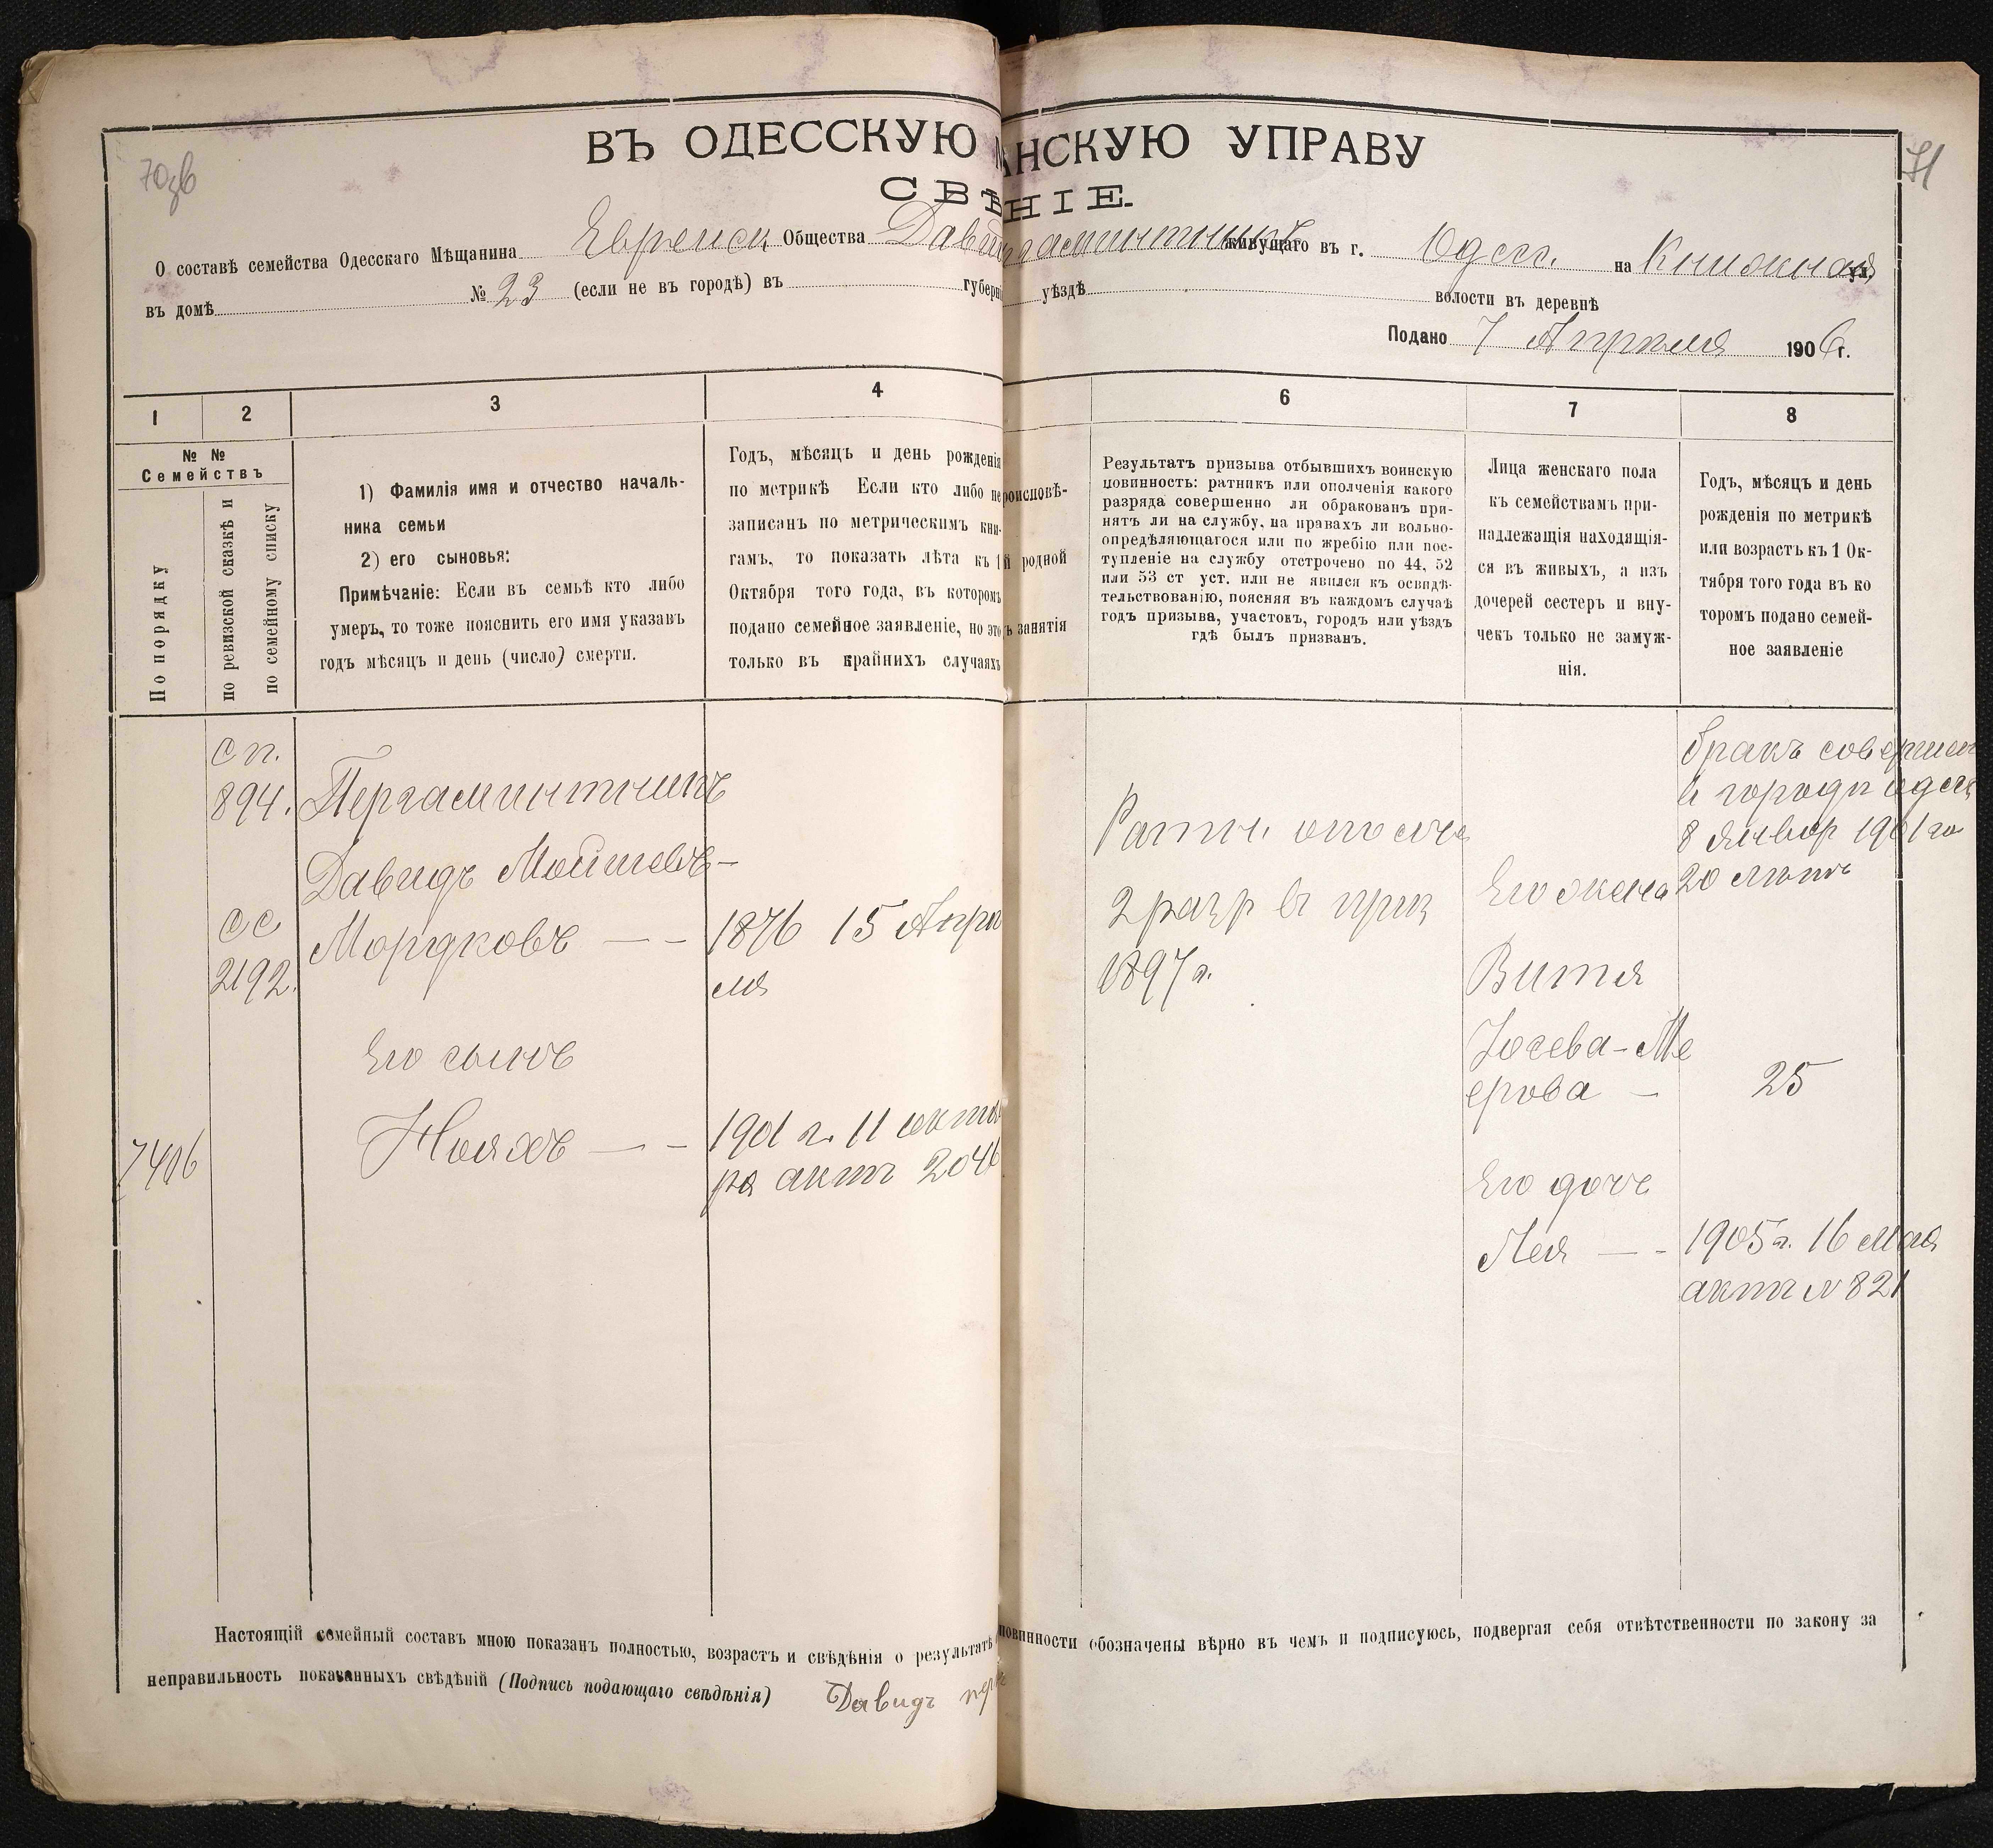 70зв
71
ВЪ ОДЕССКУЮ АНСКУЮ УПРАВУ
СВѢНІЕ.
О составѣ семейства Одесскаго Мѣщанина Евреиск Общества Дави гаминтникъ живущаго въ г. Одес. на Книжная ул.
въ домѣ № 23 (если не въ городѣ) въ губерні уѣздѣ волости въ деревнѣ
Подано 7 Апреля 1906 г.
1 2 3 4 6 7 8
№ №
Семействъ
По порядку
по ревизской сказкѣ и
по семейному списку
1) Фамилія имя и отчество началь-
ника семьи
2) его сыновья:
Примѣчаніе: Если въ семьѣ кто либо
умеръ, то тоже пояснить его имя указавъ
годъ мѣсяцъ и день (число) смерти.
Годъ, мѣсяцъ и день рожденія
по метрикѣ Если кто либо не
записанъ по метрическимъ кни-
гамъ, то показать лѣта къ 1
Октября того года, въ которомъ
подано семейное заявленіе, но это
только въ крайнихъ случаяхъ
роисповѣ-
й родной
ъ занятія
Результатъ призыва отбывшихъ воинскую
повинность: ратникъ или ополченія какого
разряда совершенно ли обракованъ при-
нятъ ли на службу, на правахъ ли вольно-
опредѣляющагося или по жребію или пос-
тупленіе на службу отстрочено по 44, 52
или 53 ст уст. или не явился къ освидѣ-
тельствованію, поясняя въ каждомъ случаѣ
годъ призыва, участокъ, городъ или уѣздъ
гдѣ былъ призванъ.
Лица женскаго пола
къ семействамъ при-
надлежащія находящія-
ся въ живыхъ, а изъ
дочерей сестеръ и вну-
чекъ только не замуж-
нія.
Годъ, мѣсяцъ и день
рожденія по метрикѣ
или возрастъ къ 1 Ок-
тября того года въ ко
торомъ подано семей-
ное заявленіе
7406
сп.
894.
сс
2192.
Пергаминтникъ
Давидъ Мойшевъ-
Мордковъ — -
1876 15 Апре
ля
Его сынъ
Нояхъ — -
1901 г. 11 октя
ря актъ 2046
Ратн. ополч
2 разр въ приз
1897 г.
Его жена
Витя
Іосева-Ме
ерова —
Его дочь
Лея — -
бракъ совершен
в городѣ одесс
8 январ 1901 го
20 лѣтъ
25
1905 г. 16 мая
актъ N 821
Настоящій семейный составъ мною показанъ полностью, возрастъ и свѣдѣнія о результатѣ повинности обозначены вѣрно въ чемъ и подписуюсь, подвергая себя отвѣтственности по закону за
неправильность показанныхъ свѣдѣній (Подпись подающаго свѣдѣнія) Давидъ пер